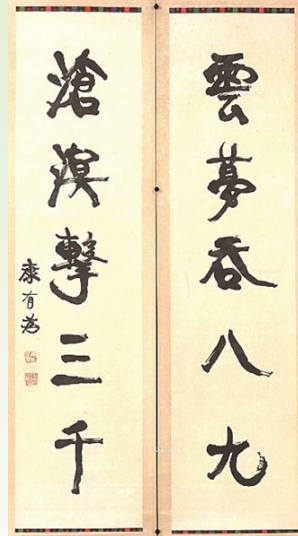 雲夢吞八九
滄溟擊三千
康有為